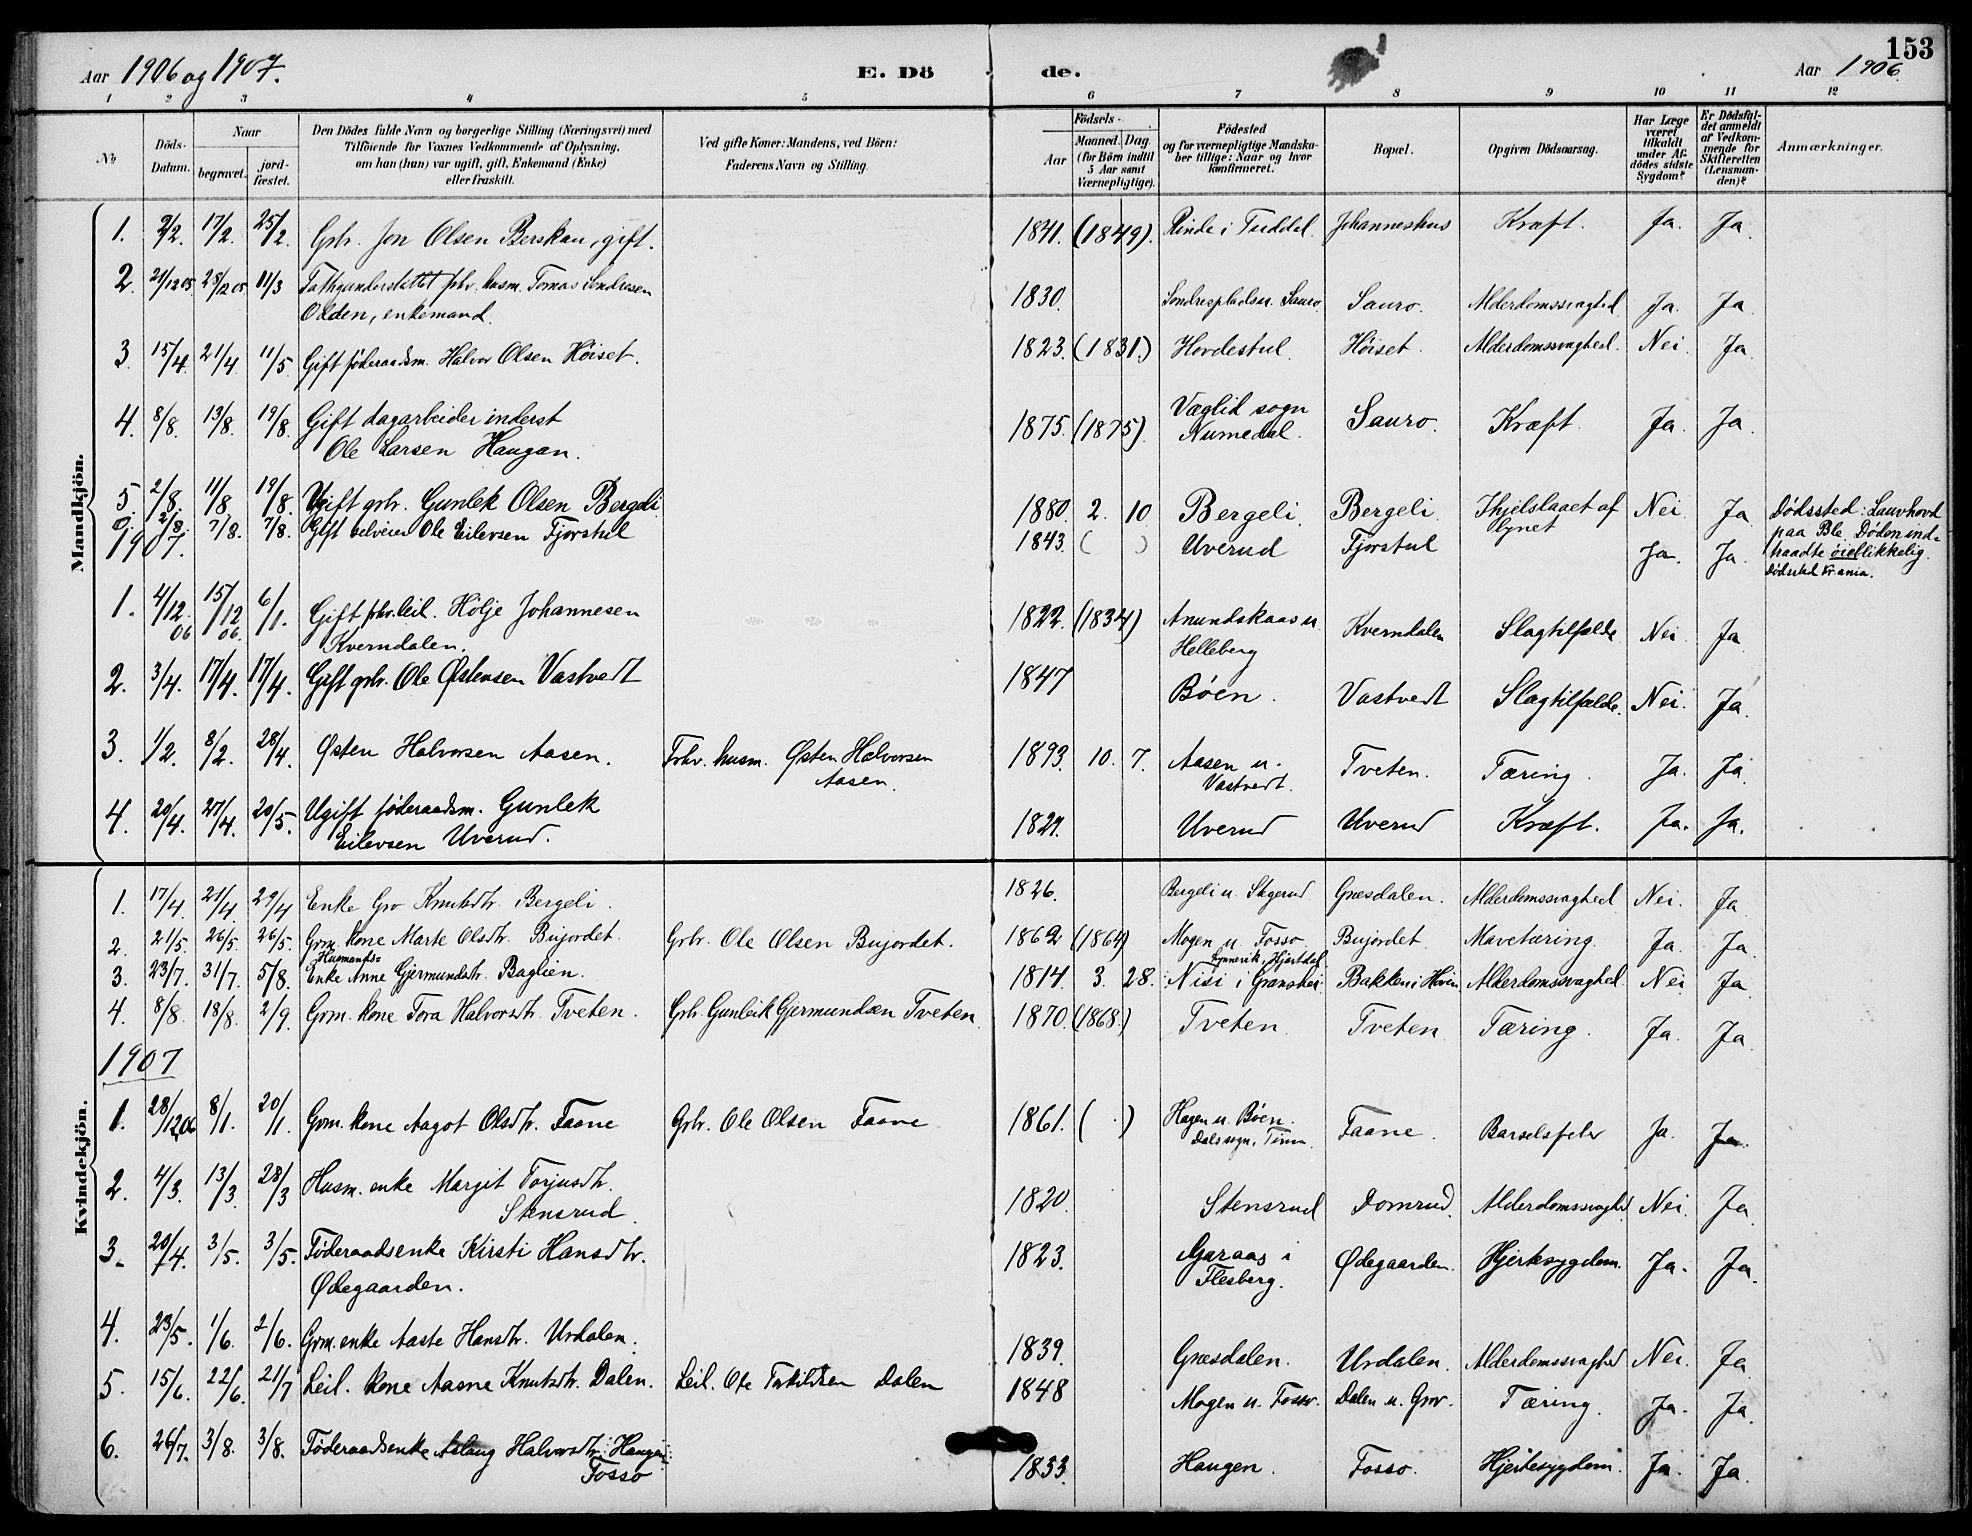 Aar 1906 og 1907. E. Dö de. Aar 1906. 153
1 2 3 4 5 6 7 8 9 10 11 12
№ Döds-Datum. Naar begravet. jordfæstet. Den Dödes fulde Navn og borgerlige Stilling (Næringsvei) med Tilföiende for Voxnes Vedkommende af Oplysning, om han (hun) var ugift, gift, Enkemand (Enke) eller fraskilt. Ved gifte Koner: Mandens, ved Börn: Faderens Navn og Stilling. Födsels- Aar Maaned. Dag. (for Börn indtil 5 Aar samt Værnepligtige). Födested og for værnepligtige Mandskaber tillige: Naar og hvor konfirmeret. Bopæl. Opgiven Dödsaarsag. Har Læge været tilkaldt under Afdödes sidste Sygdom? Er Dödsfaldet anmeldt af Vedkommende for Skifteretten (Lensmanden)? Anmærkninger.
Mandkjön.
1. 9/2. 17/2. 25/2. Gbr. Jon Olsen Berskau, gift. 1841. (1849). Rinde i Tuddal. Johanneshus Kræft. Ja. Ja.
2. 21/12 05 28/12 05 11/3 Fattigunderstøttet fhv. husm. Tomas Sondresen 1830. Sondrespladsen u. Sauro. Sauro. Alderdomssvaghed Ja. Ja.
Odden, enkemand.
3. 15/4. 21/4 11/5. Gift føderaadsm. Halvor Olsen Höiset. 1823. (1831.) Hovdestul. Höiset. Alderdomssvaghed. Nei. Ja.
4. 8/8. 13/8. 19/8. Gift dagarbeider inderst 1875. (1875) Væglid sogn Sauro. Kræft. Ja. Ja.
Ole Larsen Haugan. Numedal.
5. 2/8. 11/8 19/8. Ugift gbr. Gunlek Olsen Bergeli 1880. 2. 10 Bergeli. Bergeli. Ihjelslaaet af Nei. Ja Dödssted: Lauvhovd
lynet paa Ble. Döden ind-
2/8. 7/8. 7/8. Gift selveier Ole Eilevsen Fjorstul 1843. ( ) Uverud Fjorstul Ja. Ja. traadte öieblikkelig.
Dödssted Kr.ania.
1907.
1. 4/12 06 15/12 06. 6/1. Gift fhv. leil. Hölje Johannesen 1822. (1834) Anundskaas u. Kverndalen Slagtilfælde Nei. Ja
Kverndalen. Helleberg
2. 3/4. 17/4. 17/4. Gift gbr. Ole Østensen Vastvedt 1847 Böen. Vastvedt Slagtilfælde. Nei. Ja.
3. 1/2. 8/2. 28/4. Østen Halvorsen Aasen. Fhv. husm. Østen Halvorsen 1893. 10. 7. Aasen u. Tveten. Tæring. Ja. Ja
Aasen. Vastvedt.
4. 20/4. 27/4. 20/5. Ugift föderaadsm. Gunlek 1829. Uverud Uverud Kræft. Ja. Ja.
Eilevsen Uverud.
Kvindekjön.
1. 17/4. 21/4. 29/4 Enke Gro Knutsdtr. Bergeli. 1826. Bergeli u. Skgerud Græsdalen. Alderdomssvaghed Nei. Ja
2. 21/5. 26/5. 26/5. Grm. kone Marte Olsdtr. Bujordet. Gbr. Ole Olsen Bujordet. 1862 (1864) Mogen u. Fosso. Bujordet Mavetæring. Ja. Ja.
Husmands= Hjartdal
3. 23/7. 31/7. 5/8. Enke Anne Gjermundsdtr. Baglien. 1814. 3. 28. Nisi i Gransherr. Bakken i Hovin Alderdomssvaghed. Nei Ja.
4. 8/8. 18/8. 2/9. Grm. kone Tora Halvorsdtr. Tveten. Gbr. Gunleik Gjermundsen Tveten. 1870. (1868.) Tveten. Tveten. Tæring. Ja. Ja.
1907
1. 28/12 06 8/1. 20/1. Grm. kone Aagot Olsdtr. Faane Gbr. Ole Olsen Faane 1861. ( ) Hagen u. Böen. Faane. Barselfeber Ja. Ja.
Dals sogn, Tinn.
2. 4/3. 13/3. 28/3 Husm. enke Margit Torjusdtr. 1820. Stensrud Domrud. Alderdomssvaghed Nei. Ja.
Stensrud.
3. 20/4. 3/5. 3/5. Föderaadsenke Kirsti Hansdtr. 1823. Garaas i Ødegaarden. Hjertesygdom. Ja. Ja.
Ødegaarden. Flesberg.
4. 23/5. 1/6. 2/6. Grm. enke Aaste Hansdtr. Urdalen. 1839. Græsdalen. Urdalen. Alderdomssvaghed Nei. Ja.
5. 15/6. 22/6. 21/7 Leil. kone Aasne Knutsdtr. Dalen. Leil. Ole Torkildsen Dalen 1848 Mogen u. Fosso. Dalen u. Grov. Tæring. Ja. Ja.
6. 26/7. 3/8. 3/8. Föderaadsenke Aslaug Halvorsdtr. Haugen 1833. Haugen. Fosso. Hjertesygdom. Ja. Ja.
Fosso